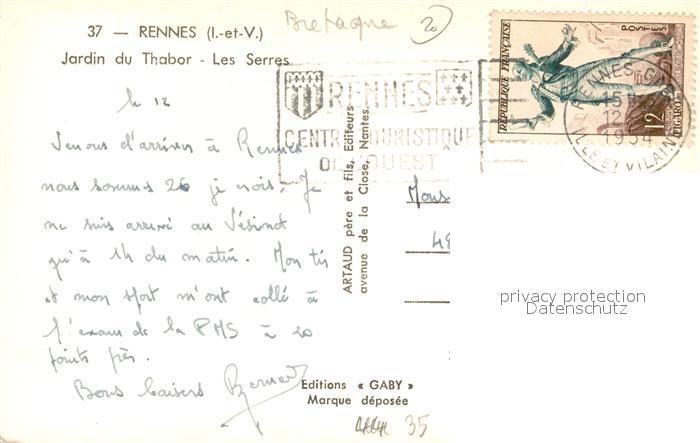 37 — RENNES (I.-et-V.)
Jardin du Thabor - Les Serres
Bretagne 20
REPUBLIQUE FRANÇAISE
POSTES
12F
FIGARO
RENNES
CENTRE TOURISTIQUE
DE L'OUEST
RENNES-GARE
15H
12
1954
ILLE ET VILAINE
le 12
Venons d'arriver à Rennes
nous sommes 26 je crois. Je
ne suis arrivé au Vésinet
qu'à 1h du matin. Mon tir
et mon sport m'ont collé à
l'exam de la PMS à 20
points près.
Bons baisers Bernard
ARTAUD père et fils, Editeurs
avenue de la Close, Nantes.
Mons
49
privacy protection
Datenschutz
Editions « GABY »
Marque déposée
35